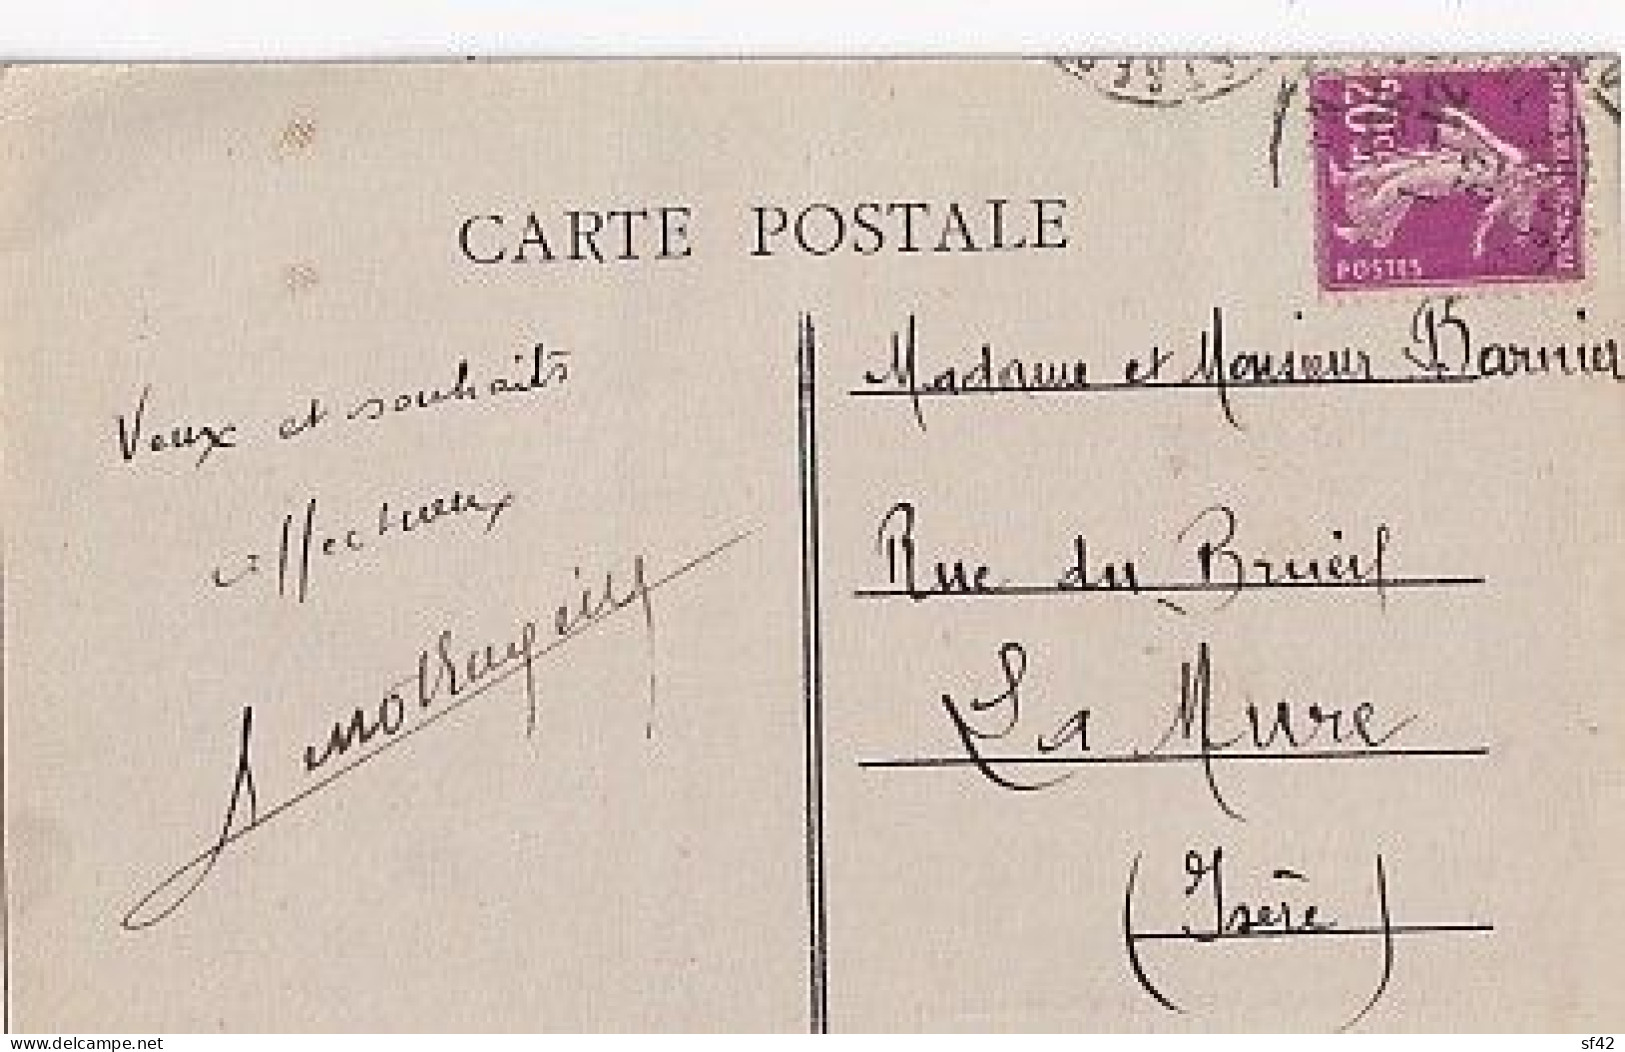 CARTE POSTALE
20c
POSTES
Veux et souhaits
affectueux
Madame et Monsieur Barnier
Rue du Brueil
La Mure
(Isère)
www.delcampe.net
sf42